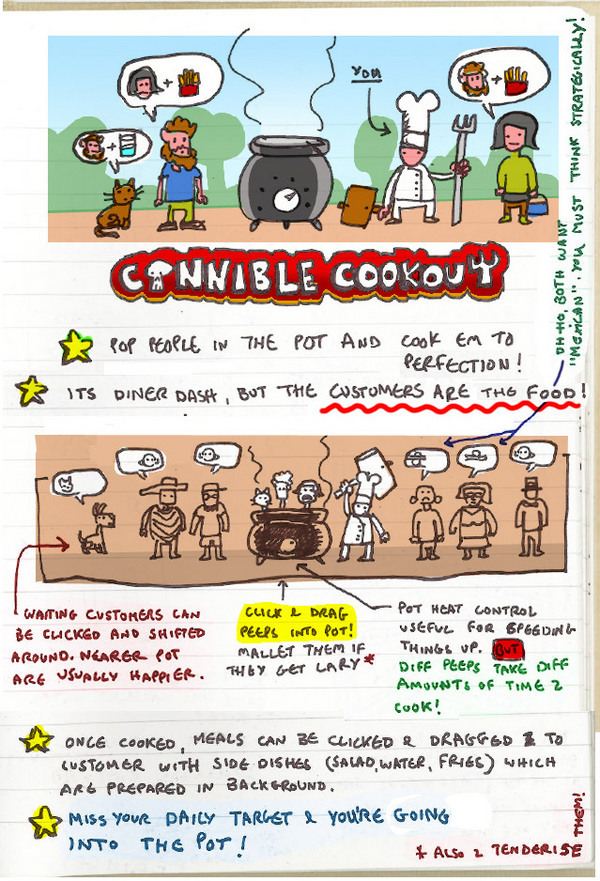 YOU
CANNIBLE COOKOUT
POP PEOPLE IN THE POT AND COOK EM TO
PERFECTION!
ITS DINER DASH, BUT THE CUSTOMERS ARE THE FOOD!
OH-HO, BOTH WANT
"MEXICAN". YOU MUST THINK STRATEGICALLY!
WAITING CUSTOMERS CAN
BE CLICKED AND SHIFTED
AROUND. NEARER POT
ARE USUALLY HAPPIER.
CLICK & DRAG
PEEPS INTO POT!
MALLET THEM IF
THEY GET LARY*
POT HEAT CONTROL
USEFUL FOR SPEEDING
THINGS UP. BUT
DIFF PEEPS TAKE DIFF
AMOUNTS OF TIME 2
COOK!
ONCE COOKED, MEALS CAN BE CLICKED & DRAGGED TO
CUSTOMER WITH SIDE DISHES (SALAD, WATER, FRIES) WHICH
ARE PREPARED IN BACKGROUND.
MISS YOUR DAILY TARGET & YOU'RE GOING
INTO THE POT!
* ALSO 2 TENDERISE THEM!